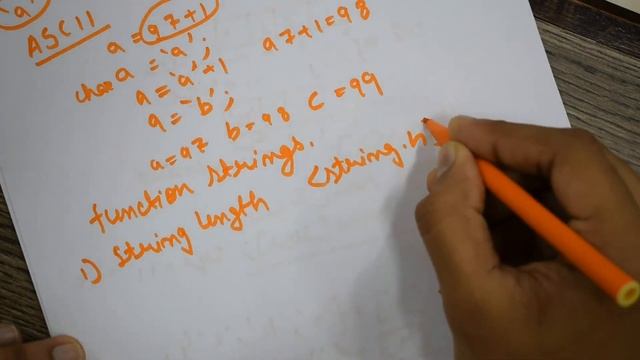 'a'
ASCII
a = 97+1
char a = 'a';
97+1=98
a = 'a'+1
a = 'b';
a=97 b=98 c=99
function strings.
<string.h
1) string length